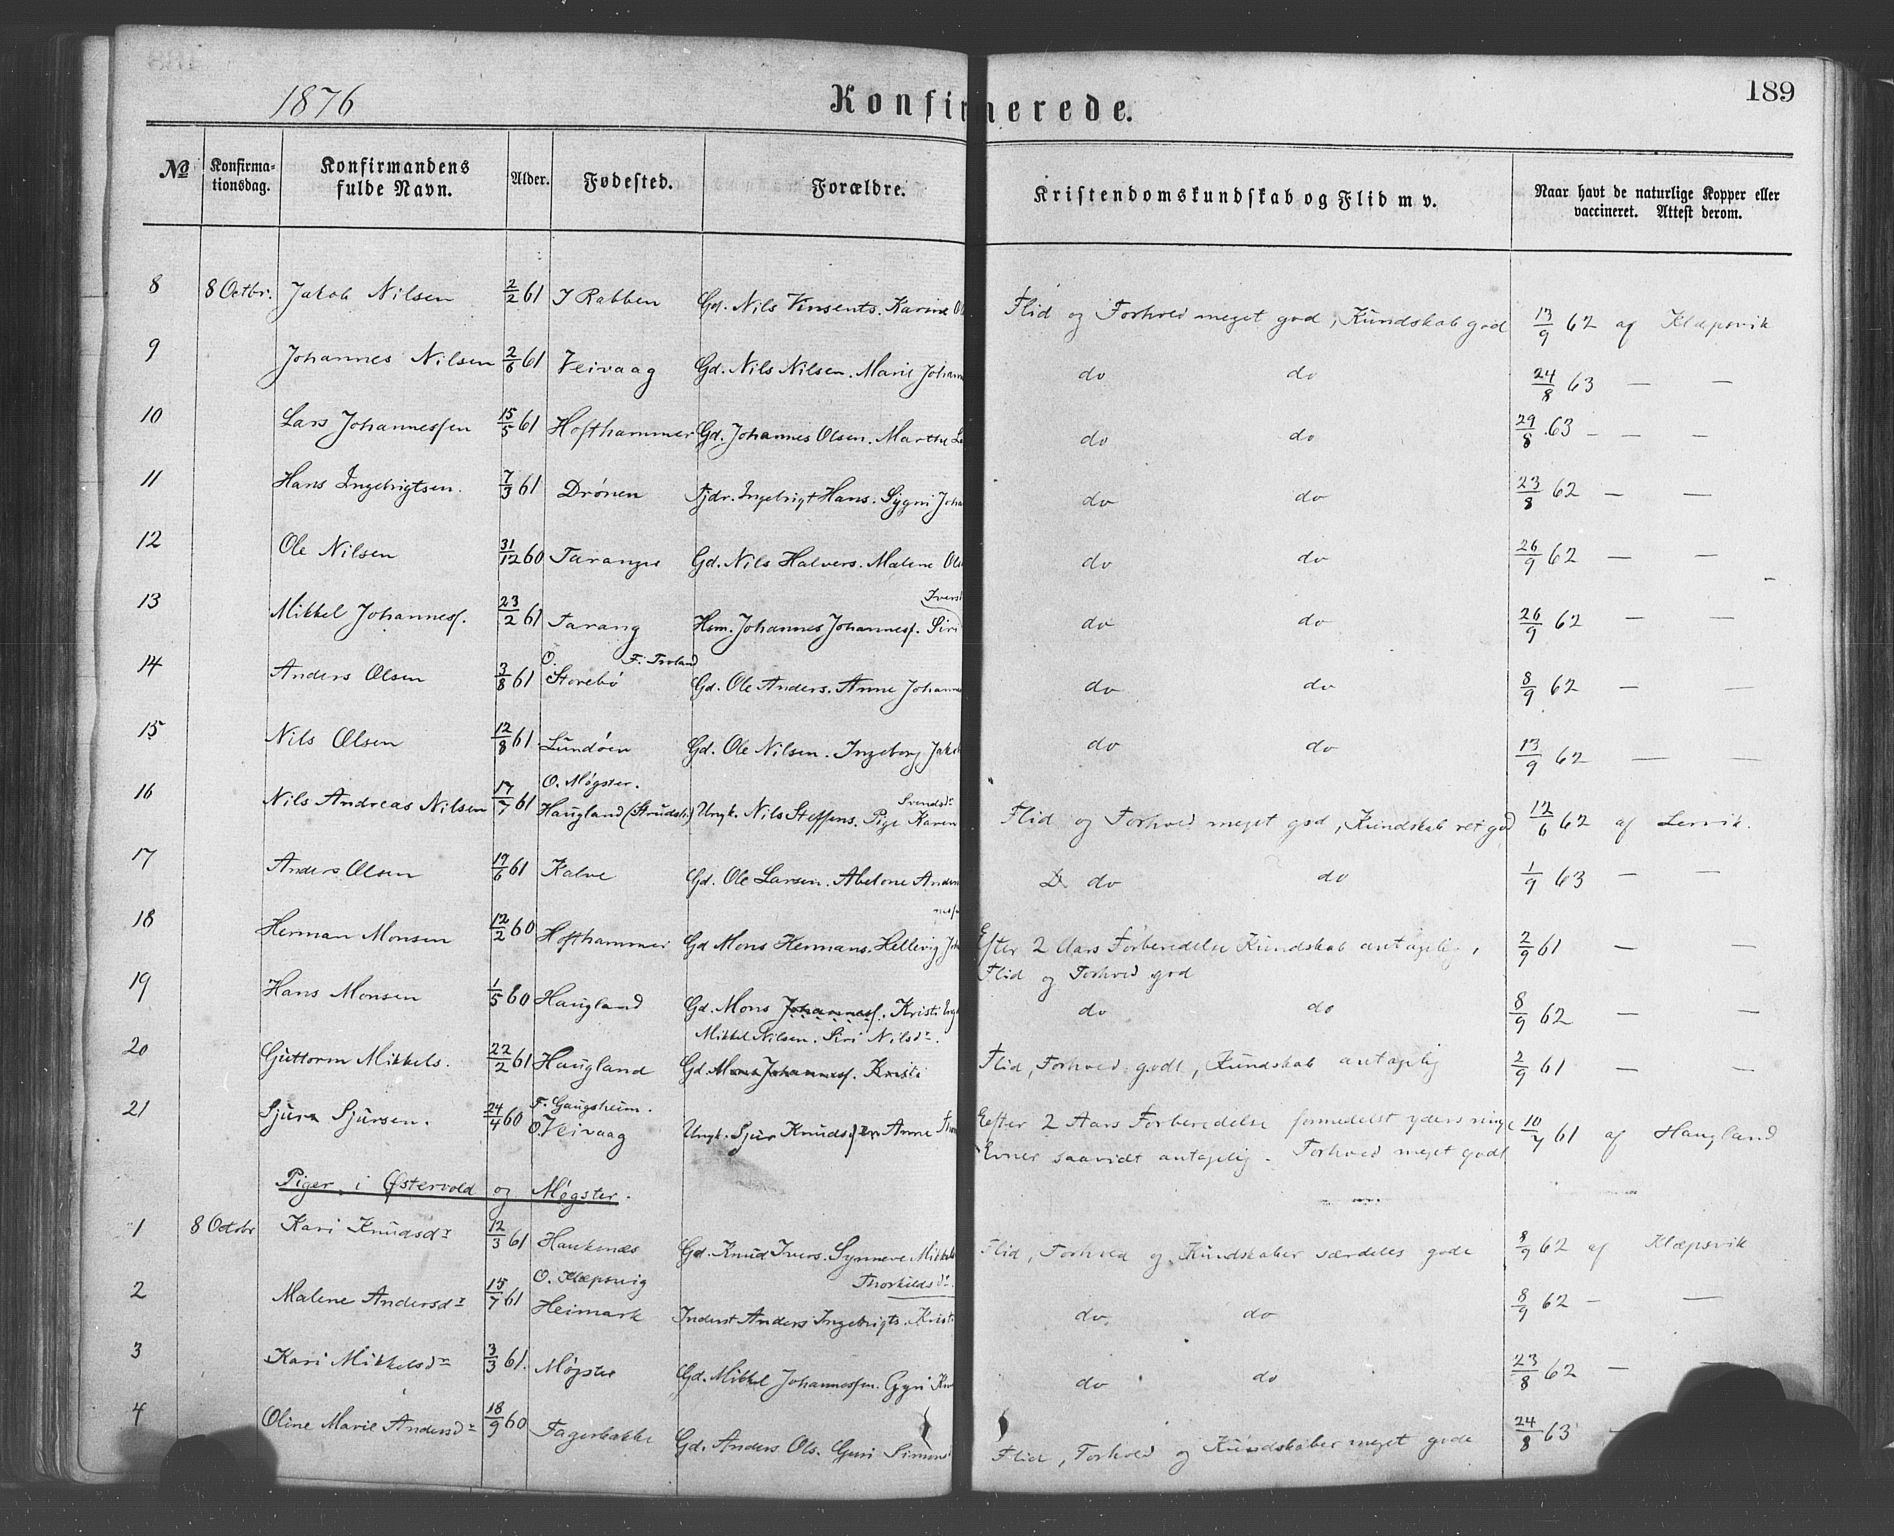 1876
Konfirmerede.
189
No
Konfirma-
tionsdag.
Konfirmandens
fulde Navn.
Alder.
Fødested.
Forældre.
Kristendomskundskab og Flid m v.
Naar havt de naturlige Kopper eller
vaccineret. Attest derom.
8 8 Octbr. Jakob Nilsen 2/2 61 I Rabben Gd. Nils Vinsents. Karine Flid og Forhold meget god, Kundskab god 13/9 62 af Klæpsvik
9 Johannes Nilsen 2/6 61 Veivaag Gd. Nils Nilsen. Marie Johann do do 24/8 63 — —
10 Lars Johannessen 15/5 61 Hofthammer Gd. Johannes Olsen. Marthe do do 29/8 63 — —
11 Hans Ingebrigtsen. 7/3 61 Drönen Fjdr. Ingebrigt Hans. Sygni Joha do do 23/8 62 — —
12 Ole Nilsen 31/12 60 Taranger Gd. Nils Halvers. Malene Ols do do 26/9 62 — —
Iversd
13 Mikkel Johannesf. 23/2 61 Tarang Hsm. Johannes Johannesf. Siri do do 26/9 62 — —
O. F. Troland
14 Anders Olsen 3/8 61 Storebö Gd. Ole Anders. Anne Johannes do do 8/9 62 — —
15 Nils Olsen 12/8 61. Lundöen Gd. Ole Nilsen. Ingeborg Jak do do 13/9 62 — —
O. Møgster. Svendsdr
16 Nils Andreas Nilsen 17/7 61 Haugland Ungk. Nils Steffens. Pige Karen Flid og Forhold meget god, Kundskab ret god 12/6 62 af Lervik.
17 Anders Olsen 17/6 61 Kalve Gd. Ole Larsen. Abelone Anders do do 1/9 63 — —
18 Herman Monsen 12/2 60 Hofthammer Gd Mons Hermans. Hellevig Efter 2 Aars Forberedelse Kundskab antagelig, 2/9 61 — —
Flid og Forhold god
19 Hans Monsen 1/5 60 Haugland Gd. Mons Johannesf. Kristi do do 8/9 62 — —
Mikkel Nilsen. Siri Nilsdr.
20 Guttorm Mikkels. 22/2 61 Haugland Gd. Mons Johannesf. Kristi Flid, Forhold godt, Kundskab antagelig 2/9 61 — —
F. Gaugsheim.
21 Sjur Sjursen. 24/4 60 O. Veivaag Ungk. Sjur Knuds Anne Efter 2 Aars Forberedelse formedelst yderst ringe 10/7 61 af Haugland
Evner saavidt antagelig. Forhold meget godt
Piger i Østervold og Møgster.
1 8 Octbr Kari Knudsdr 12/3 61 Haukenæs Gd. Knud Ivers. Synneve Mikkels Flid, Forhold og Kundskaber særdeles gode 8/9 62 af Klæpsvik
O. Klæpsvig Thorkildsdr.
2 Malene Andersdr 15/7 61 Heimark Inderst Anders Ingebrigts. Kristi do do 8/9 62 — —
3 Kari Mikkelsdr 3/3 61. Møgster Gd. Mikkel Johannessen. Gyri Knu do do 23/8 62 — —
4 Oline Marie Andersdr 18/9 60 Fagerbakke Gd. Anders Ols. Guri Simons Flid, Forhold og Kundskaber meget gode 24/8 63 —